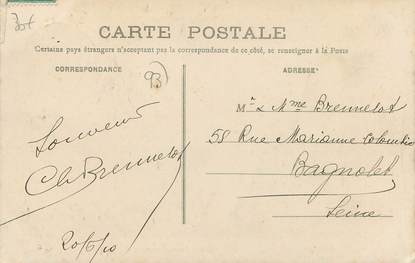 CARTE POSTALE
Certains pays étrangers n'acceptant pas la correspondance de ce côté, se renseigner à la Poste
CORRESPONDANCE
ADRESSE
93
Souvenir
Ch Brennetot
20/6/10
Mr & Mme Brennetot
58 Rue Marianne Colombier
Bagnolet
Seine